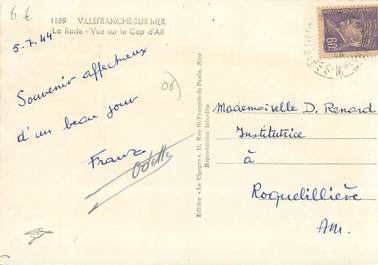 6 €
1189 VILLEFRANCHE-SUR MER
La Rade - Vue sur le Cap d'Ail
5.7.44
Souvenir affectueux
d'un beau jour
Franz
Odette
06)
Edition «La Cigogne», 11, Rue St-François-de-Paule, Nice
Reproduction interdite
60f
Mademoiselle D. Renard
Institutrice
à
Roquellière
AM.